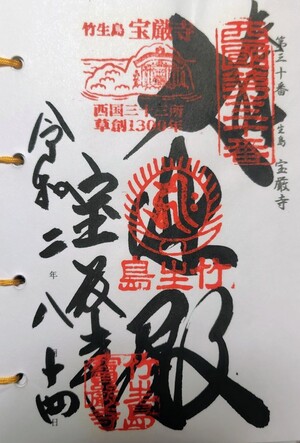 第三十番
竹生島
宝厳寺
西国第三十番
大悲殿
竹生島 宝厳寺
西国三十三所
草創1300年
竹生島
宝厳寺
竹生島
令和二年八月十四日